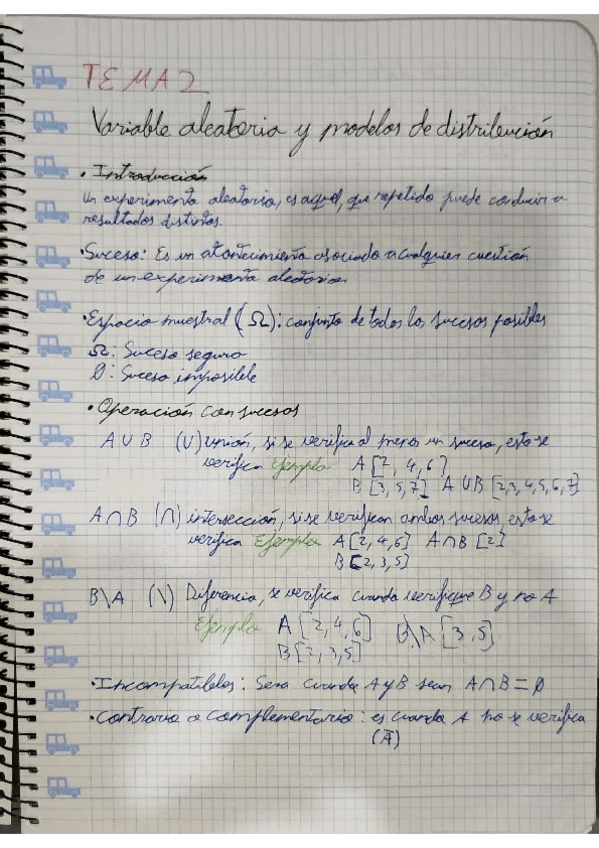 TEMA 2
Variable aleatoria y modelos de distribución
• Introducción
Un experimento aleatorio, es aquel, que repetido puede conducir a
resultados distintos.
• Suceso: Es un acontecimiento asociado a cualquier cuestión
de un experimento aleatorio.
• Espacio muestral (Ω): conjunto de todos los sucesos posibles
Ω: Suceso seguro
∅: Suceso imposible
• Operación con sucesos
A∪B (∪) unión, si se verifica al menos un suceso, esto se
verifica Ejemplo A[2, 4, 6]
B[3, 5, 7] A∪B [2,3,4,5,6,7]
A∩B (∩) intersección, si se verifican ambos sucesos, esto se
verifica Ejemplo A[2,4,6] A∩B [2]
B[2,3,5]
B\A (\) Diferencia, se verifica cuando verifique B y no A
Ejemplo A[2,4,6] B\A [3,5]
B[2,3,5]
• Incompatibles: Sera cuando A y B sean A∩B = ∅
• Contrario o complementario: es cuando A no se verifica
(Ā)